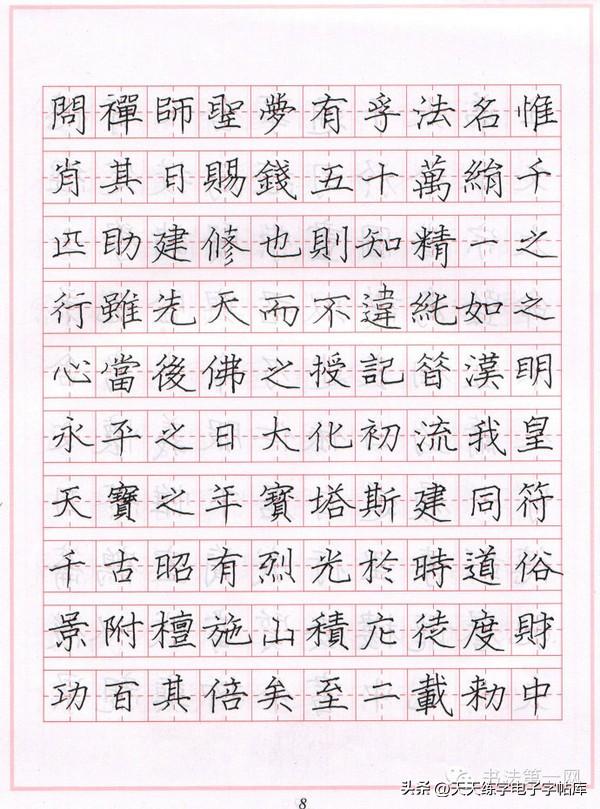 問禪師聖夢有孚法名惟
肖其日賜錢五十萬絹千
匹助建修也則知精一之
行雖先天而不違純如之
心當後佛之授記昝漢明
永平之日大化初流我皇
天寶之年寶塔斯建同符
千古昭有烈光於時道俗
景附檀施山積庀徒度財
功百其倍矣至二載勑中
书法第一网
头条 @天天练字电子字帖库
8